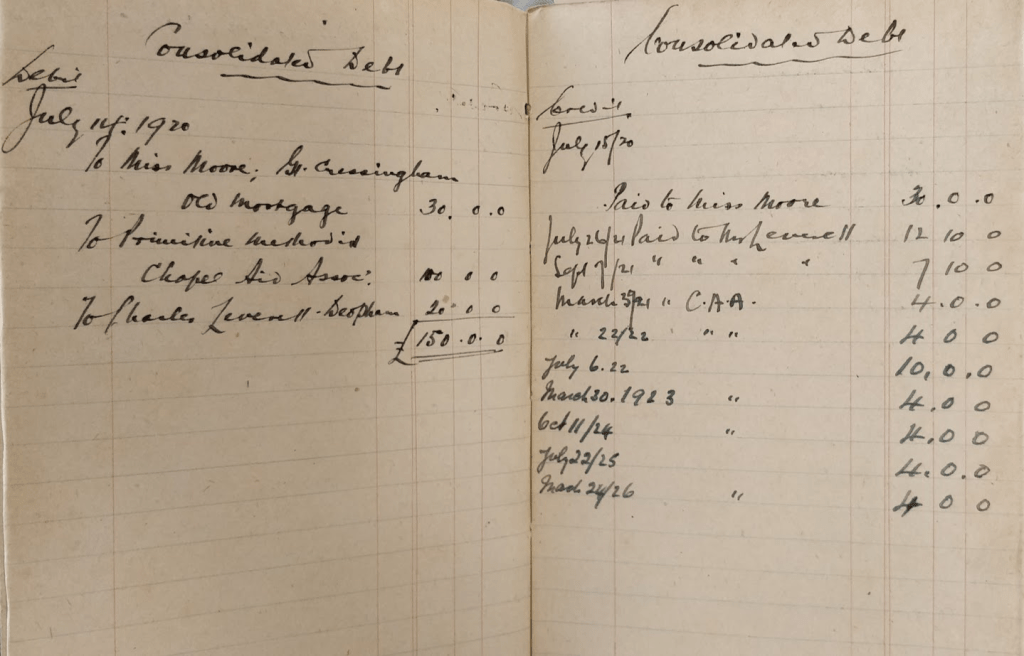 Consolidated Debt
Debit
July 14. 1920
To Miss Moore; Gt. Cressingham
Old mortgage 30. 0. 0
To Primitive Methodist
Chapel Aid Assoc: 100 0 0
To Charles Leverett - Deopham 20 0 0
£ 150. 0. 0
Consolidated Debt
Credit
July 15/20
Paid to Miss Moore 30. 0. 0
July 26/21 Paid to Mr Leverett 12 10 0
Sept 7/21 " " " " 7 10 0
March /21 " C.A.A. 4. 0. 0
" 22/22 " " 4 0 0
July 6. 22 10. 0. 0
March 30. 1923 " 4. 0 0
Oct 11/24 " 4. 0 0
July 22/25 4. 0. 0
March 24/26 " 4 0 0